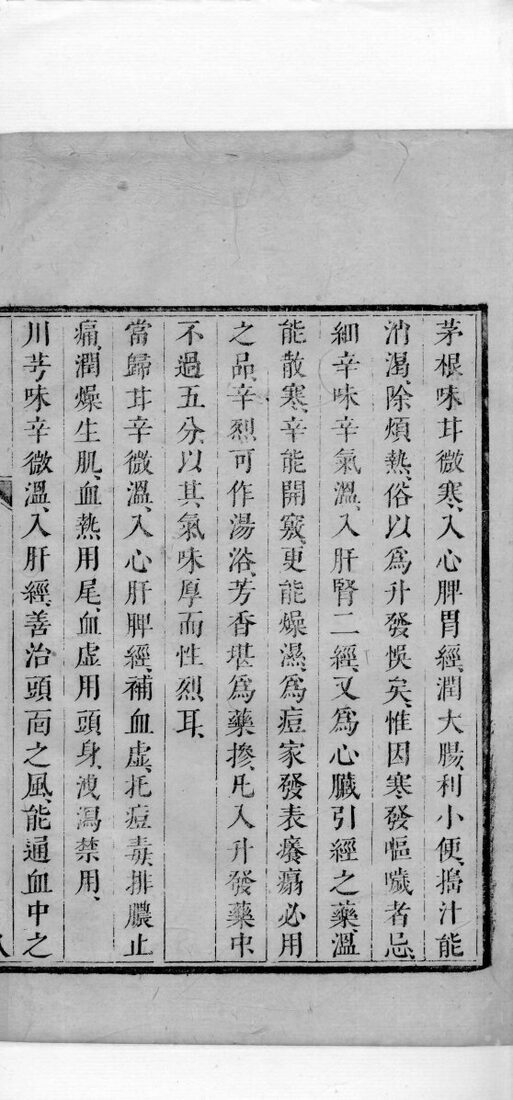 茅根味甘微寒、入心脾胃經、潤大腸、利小便、搗汁能
消渴、除煩熱、俗以爲升發悞矣、惟因寒發嘔噦者忌、
細辛味辛氣溫、入肝腎二經、又爲心臟引經之藥、溫
能散寒、辛能開竅、更能燥濕、爲痘家發表癢癆必用
之品、辛烈可作湯浴、芳香堪爲藥摻、凡入升發藥中、
不過五分、以其氣味厚而性烈耳、
當歸甘辛微溫、入心肝脾經、補血虛、托痘毒、排膿止
痛、潤燥生肌、血熱用尾、血虛用頭身、洩瀉禁用、
川芎味辛微溫、入肝經、善治頭面之風、能通血中之
八